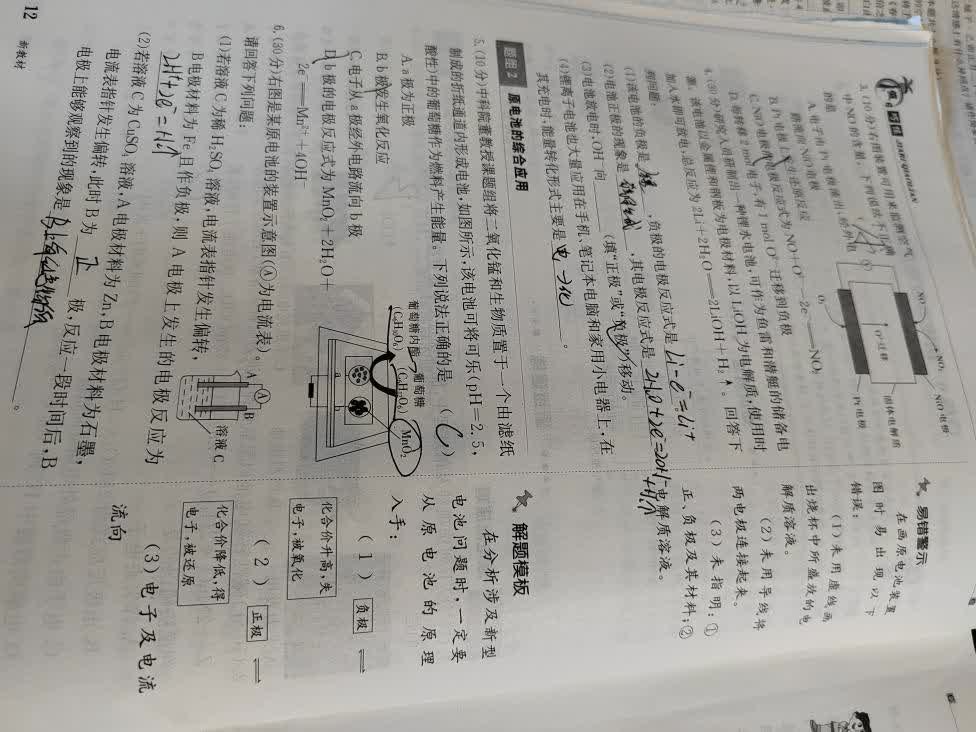 3.(10分)右图装置可用来监测空气
中NO的含量,下列说法不正确
的是
A.电子由Pt电极流出,经外电
路流向NiO电极
B.Pt电极上发生还原反应
C.NiO电极的电极反应式为NO+O²⁻-2e⁻══NO₂
D.每转移2 mol电子,有1 mol O²⁻迁移到负极
4.(30分)研究人员研制出一种锂水电池,可作为鱼雷和潜艇的储备电
源。该电池以金属锂和钢板为电极材料,以LiOH为电解质,使用时
加入水即可放电,总反应为2Li+2H₂O══2LiOH+H₂↑。回答下
列问题:
(1)该电池的负极是 锂 ,负极的电极反应式是 Li-e⁻=Li⁺
(2)电池正极的现象是 ,其电极反应式是 2H₂O+2e⁻=2OH⁻+H₂↑
(3)电池放电时,OH⁻向 (填“正极”或“负极”)移动。
(4)锂离子电池也大量应用在手机、笔记本电脑和家用小电器上,在
其充电时,能量转化形式主要是 电→化 。
题组2 原电池的综合应用
5.(10分)中科院董教授课题组将二氧化锰和生物质置于一个由滤纸
制成的折纸通道内形成电池,如图所示,该电池可将可乐(pH=2.5,
酸性)中的葡萄糖作为燃料产生能量。下列说法正确的是 ( C )
A.a极为正极
B.b极发生氧化反应
C.电子从a极经外电路流向b极
D.b极的电极反应式为MnO₂+2H₂O+
2e⁻══Mn²⁺+4OH⁻
葡萄糖内酯
(C₆H₁₀O₆)
葡萄糖
(C₆H₁₂O₆)
MnO₂
a
b
6.(30分)右图是某原电池的装置示意图(Ⓐ为电流表)。
请回答下列问题:
(1)若溶液C为稀H₂SO₄溶液,电流表指针发生偏转,
B电极材料为Fe且作负极,则A电极上发生的电极反应为
2H⁺+2e⁻=H₂↑
(2)若溶液C为CuSO₄溶液,A电极材料为Zn,B电极材料为石墨,
电流表指针发生偏转,此时B为 正 极,反应一段时间后,B
电极上能够观察到的现象是 。
A
A
B
溶液C
NO
NO₂
NiO电极
O²⁻迁移
固体电解质
O₂
Pt电极
易错警示
在画原电池装置
图时易出现以下
错误:
(1)未用虚线画
出烧杯中所盛放的电
解质溶液。
(2)未用导线将
两电极连接起来。
(3)未指明:①
正、负极及其材料;②
电解质溶液。
解题模板
在分析涉及新型
电池问题时,一定要
从原电池的原理
入手:
(1) 负极 ⇌
化合价升高,失
电子,被氧化
(2) 正极 ⇌
化合价降低,得
电子,被还原
(3)电子及电流
流向
12 新教材